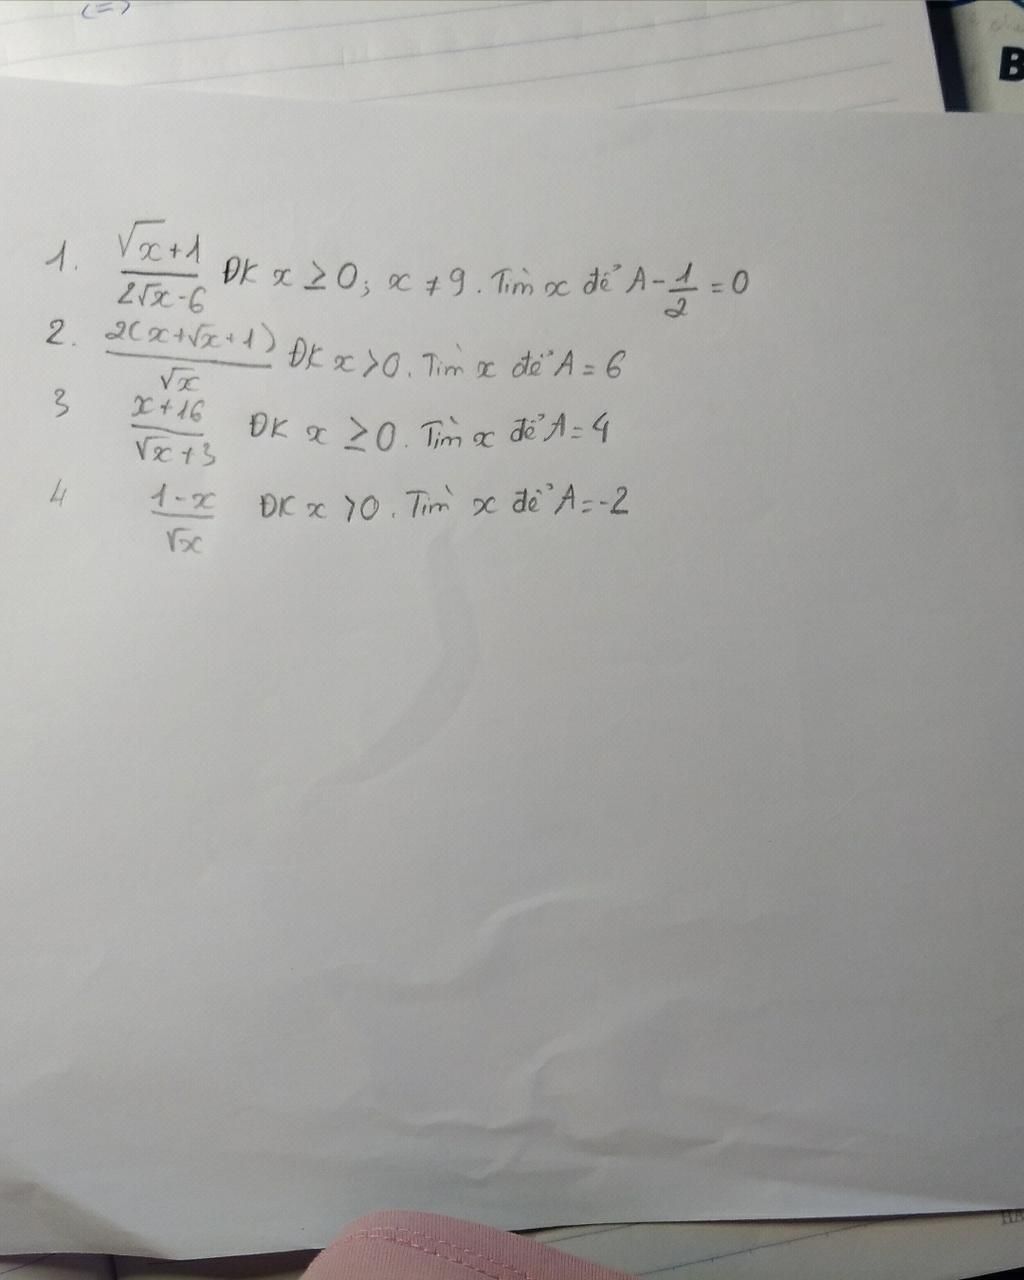 (=)
B
1. \frac{\sqrt{x}+1}{2\sqrt{x}-6} ĐK x ≥ 0; x ≠ 9. Tìm x để A - \frac{1}{2} = 0
2. \frac{2(x+\sqrt{x}+1)}{\sqrt{x}} ĐK x > 0. Tìm x để A = 6
3 \frac{x+16}{\sqrt{x}+3} ĐK x ≥ 0. Tìm x để A = 4
4 \frac{1-x}{\sqrt{x}} ĐK x > 0. Tìm x để A = -2